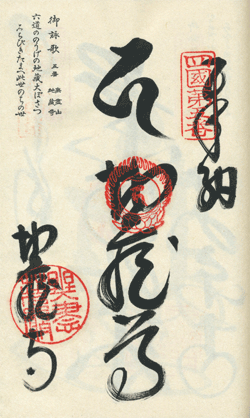 奉納
四國第五番
地蔵尊
御詠歌
五番 無尽山
地蔵寺
六道ののうげの地蔵大ぼさつ
みちびきたまへ此世のちの世
地蔵寺